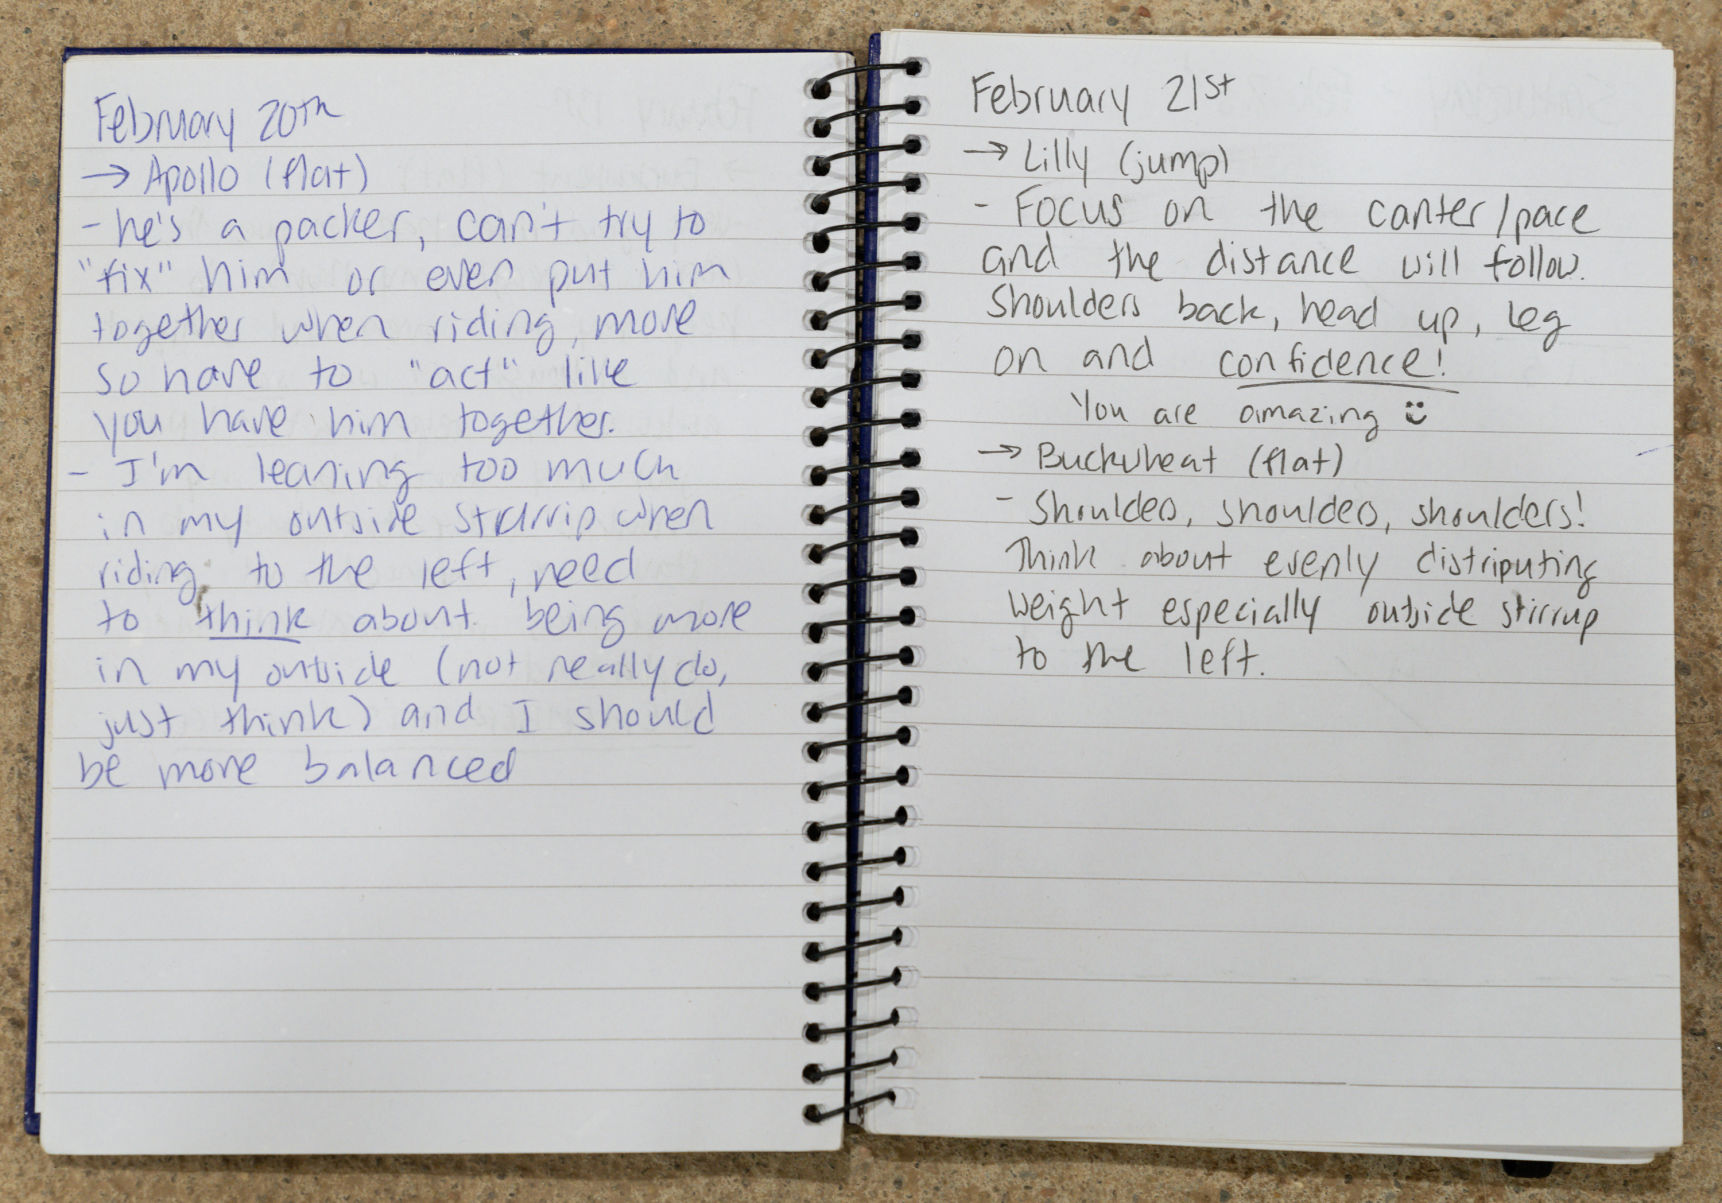 February 20th
→ Apollo (flat)
- he's a packer, can't try to
"fix" him or even put him
together when riding, more
so have to "act" like
you have him together.
- I'm leaning too much
in my outside stirrup when
riding to the left, need
to think about being more
in my outside (not really do,
just think) and I should
be more balanced
February 21st
→ Lilly (jump)
- Focus on the canter/pace
and the distance will follow.
Shoulders back, head up, leg
on and confidence!
You are amazing :)
→ Buckwheat (flat)
- Shoulders, shoulders, shoulders!
Think about evenly distriputing
weight especially outside stirrup
to the left.